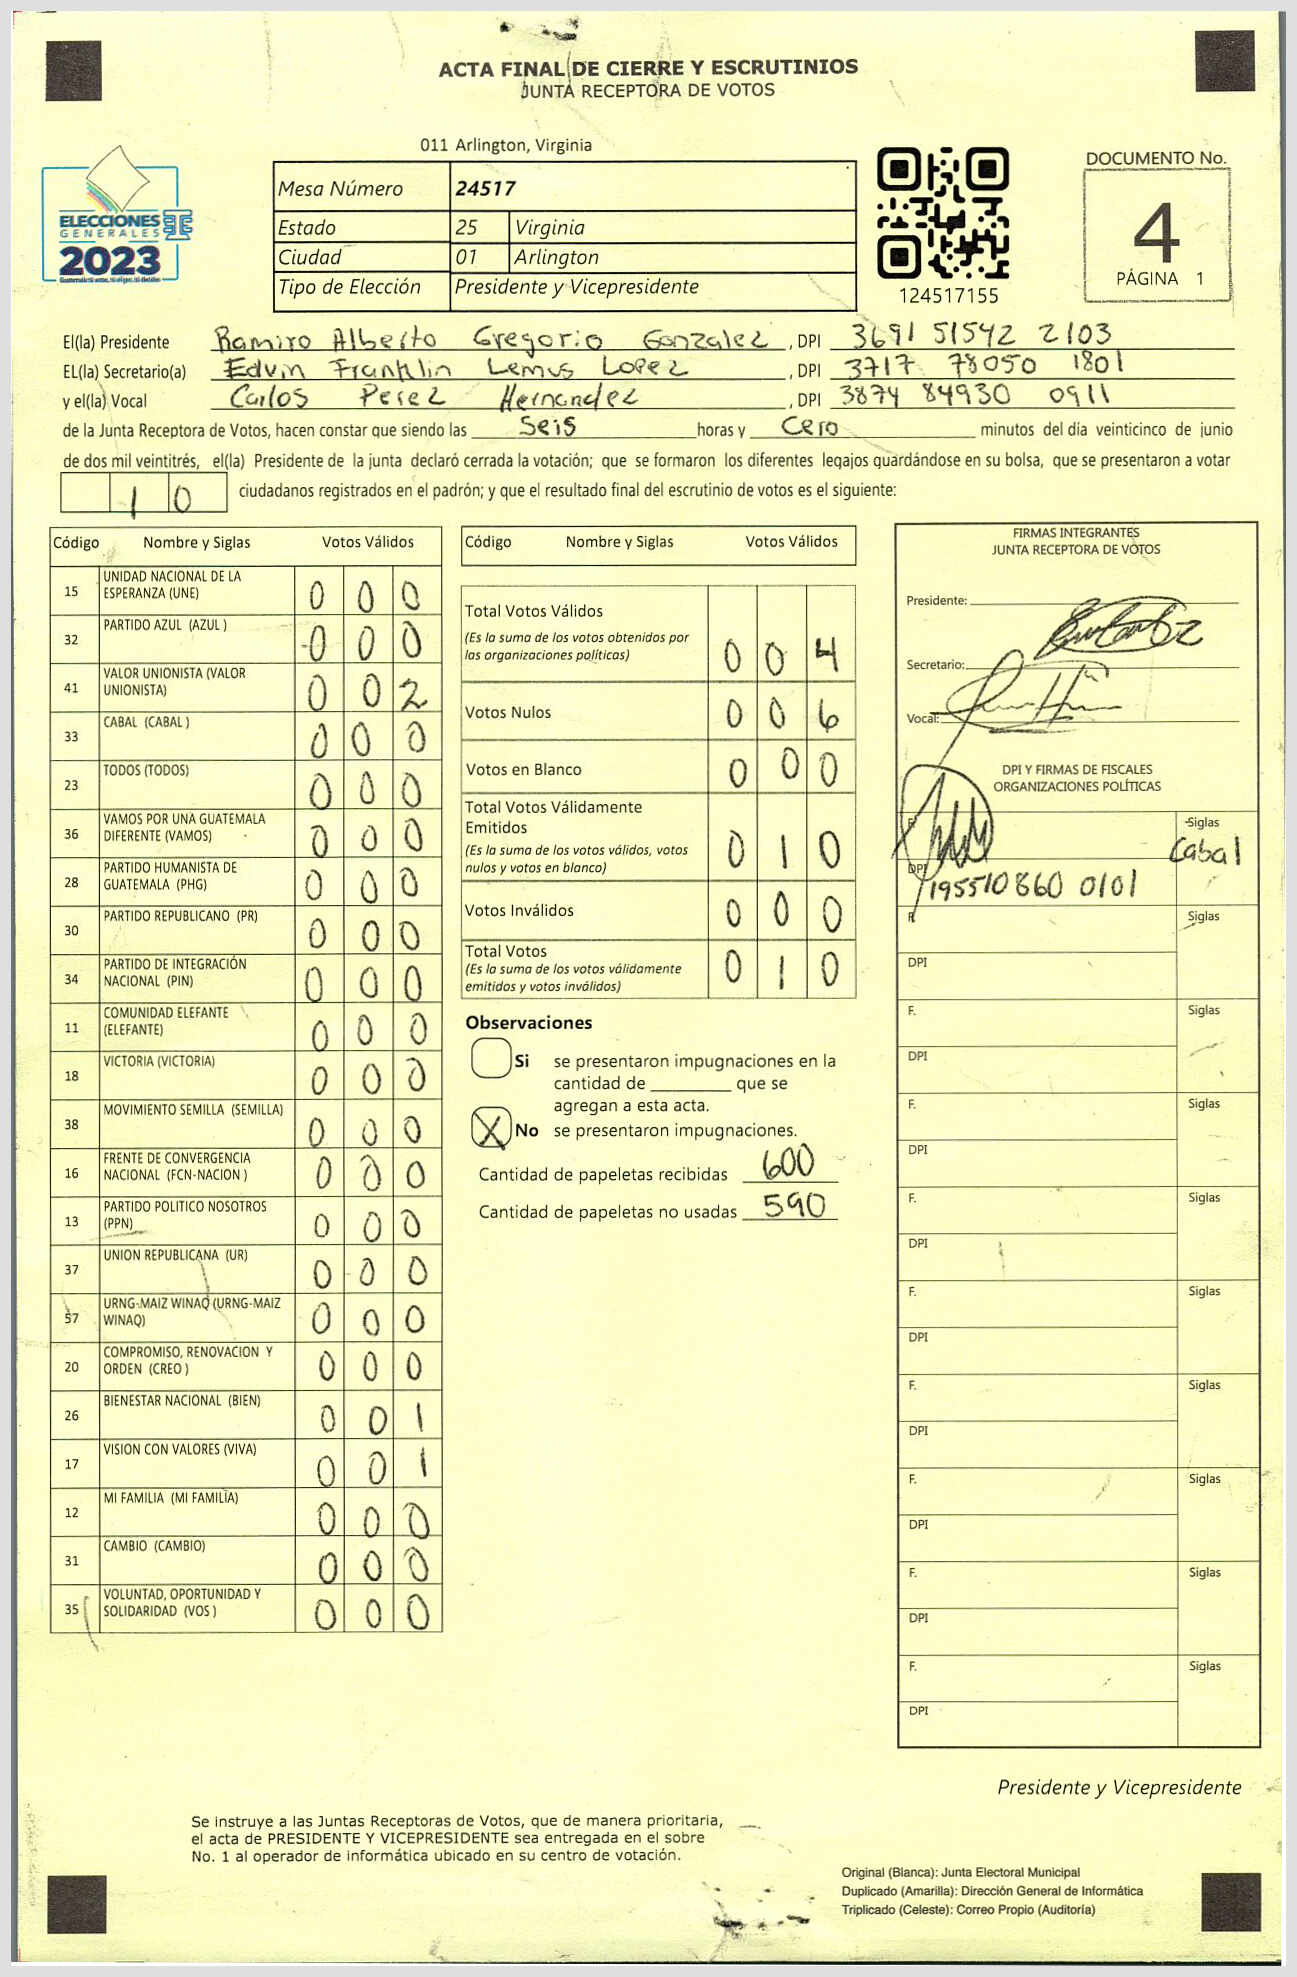 ACTA FINAL DE CIERRE Y ESCRUTINIOS
JUNTA RECEPTORA DE VOTOS
011 Arlington, Virginia
ELECCIONES
GENERALES
2023
Mesa Número 24517
Estado 25 Virginia
Ciudad 01 Arlington
Tipo de Elección Presidente y Vicepresidente
124517155
DOCUMENTO No.
4
PÁGINA 1
El(la) Presidente Ramiro Alberto Gregorio Gonzalez, DPI 3691 51542 2103
EL(la) Secretario(a) Edvin Franklin Lemus Lopez, DPI 3717 78050 1801
y el(la) Vocal Carlos Perez Hernandez, DPI 3874 84930 0911
de la Junta Receptora de Votos, hacen constar que siendo las Seis horas y Cero minutos del día veinticinco de junio
de dos mil veintitrés, el(la) Presidente de la junta declaró cerrada la votación; que se formaron los diferentes legajos guardándose en su bolsa, que se presentaron a votar
10 ciudadanos registrados en el padrón; y que el resultado final del escrutinio de votos es el siguiente:
Código Nombre y Siglas Votos Válidos
15 UNIDAD NACIONAL DE LA ESPERANZA (UNE) 0 0 0
32 PARTIDO AZUL (AZUL ) 0 0 0
41 VALOR UNIONISTA (VALOR UNIONISTA) 0 0 2
33 CABAL (CABAL ) 0 0 0
23 TODOS (TODOS) 0 0 0
36 VAMOS POR UNA GUATEMALA DIFERENTE (VAMOS) 0 0 0
28 PARTIDO HUMANISTA DE GUATEMALA (PHG) 0 0 0
30 PARTIDO REPUBLICANO (PR) 0 0 0
34 PARTIDO DE INTEGRACIÓN NACIONAL (PIN) 0 0 0
11 COMUNIDAD ELEFANTE (ELEFANTE) 0 0 0
18 VICTORIA (VICTORIA) 0 0 0
38 MOVIMIENTO SEMILLA (SEMILLA) 0 0 0
16 FRENTE DE CONVERGENCIA NACIONAL (FCN-NACION ) 0 0 0
13 PARTIDO POLITICO NOSOTROS (PPN) 0 0 0
37 UNION REPUBLICANA (UR) 0 0 0
57 URNG-MAIZ WINAQ (URNG-MAIZ WINAQ) 0 0 0
20 COMPROMISO, RENOVACION Y ORDEN (CREO ) 0 0 0
26 BIENESTAR NACIONAL (BIEN) 0 0 1
17 VISION CON VALORES (VIVA) 0 0 1
12 MI FAMILIA (MI FAMILIA) 0 0 0
31 CAMBIO (CAMBIO) 0 0 0
35 VOLUNTAD, OPORTUNIDAD Y SOLIDARIDAD (VOS ) 0 0 0
Código Nombre y Siglas Votos Válidos
Total Votos Válidos
(Es la suma de los votos obtenidos por
las organizaciones políticas) 0 0 4
Votos Nulos 0 0 6
Votos en Blanco 0 0 0
Total Votos Válidamente
Emitidos
(Es la suma de los votos válidos, votos
nulos y votos en blanco) 0 1 0
Votos Inválidos 0 0 0
Total Votos
(Es la suma de los votos válidamente
emitidos y votos inválidos) 0 1 0
Observaciones
Si se presentaron impugnaciones en la
cantidad de ________ que se
agregan a esta acta.
X No se presentaron impugnaciones.
Cantidad de papeletas recibidas 600
Cantidad de papeletas no usadas 590
FIRMAS INTEGRANTES
JUNTA RECEPTORA DE VOTOS
Presidente:
Secretario:
Vocal:
DPI Y FIRMAS DE FISCALES
ORGANIZACIONES POLÍTICAS
F. Siglas
Cabal
DPI 195510860 0101
F. Siglas
DPI
F. Siglas
DPI
F. Siglas
DPI
F. Siglas
DPI
F. Siglas
DPI
F. Siglas
DPI
F. Siglas
DPI
F. Siglas
DPI
F. Siglas
DPI
Presidente y Vicepresidente
Se instruye a las Juntas Receptoras de Votos, que de manera prioritaria,
el acta de PRESIDENTE Y VICEPRESIDENTE sea entregada en el sobre
No. 1 al operador de informática ubicado en su centro de votación.
Original (Blanca): Junta Electoral Municipal
Duplicado (Amarilla): Dirección General de Informática
Triplicado (Celeste): Correo Propio (Auditoría)